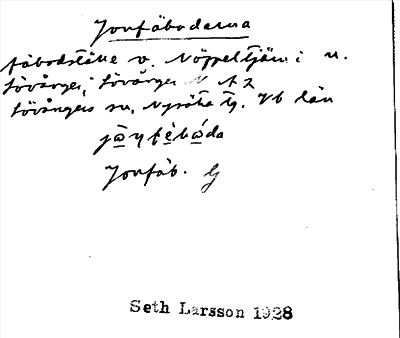 Jonfäbodarna
fäbodställe v. Nöppeltjärn i n.
Lövånger, Lövånger N A 2
Lövångers sn, Nysätra tg. Vb län
Jonfäb. G
Seth Larsson 1928